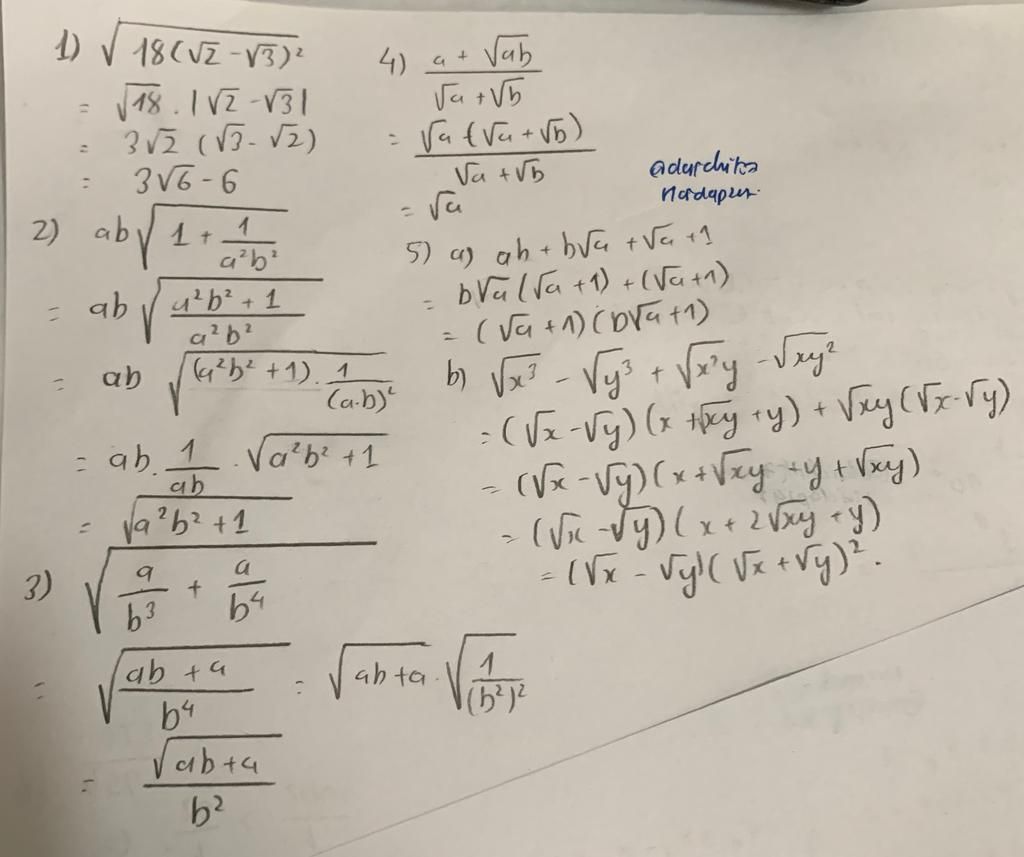 1) √18(√2 - √3)²
= √18 . |√2 - √3|
= 3√2 (√3 - √2)
= 3√6 - 6
2) ab√1 + 1/a²b²
= ab √a²b² + 1/a²b²
= ab √(a²b² + 1) . 1/(a.b)²
= ab. 1/ab . √a²b² + 1
= √a²b² + 1
3) √a/b³ + a/b⁴
= √ab + a/b⁴ = √ab+a . √1/(b²)²
= √ab+a/b²
4) a + √ab/√a + √b
= √a (√a + √b)/√a + √b
= √a
5) a) ab + b√a + √a + 1
= b√a (√a + 1) + (√a + 1)
= (√a + 1) (b√a + 1)
b) √x³ - √y³ + √x²y - √xy²
= (√x - √y) (x + √xy + y) + √xy (√x - √y)
= (√x - √y) (x + √xy + y + √xy)
= (√x - √y) ( x + 2√xy + y)
= (√x - √y) ( √x + √y)² .